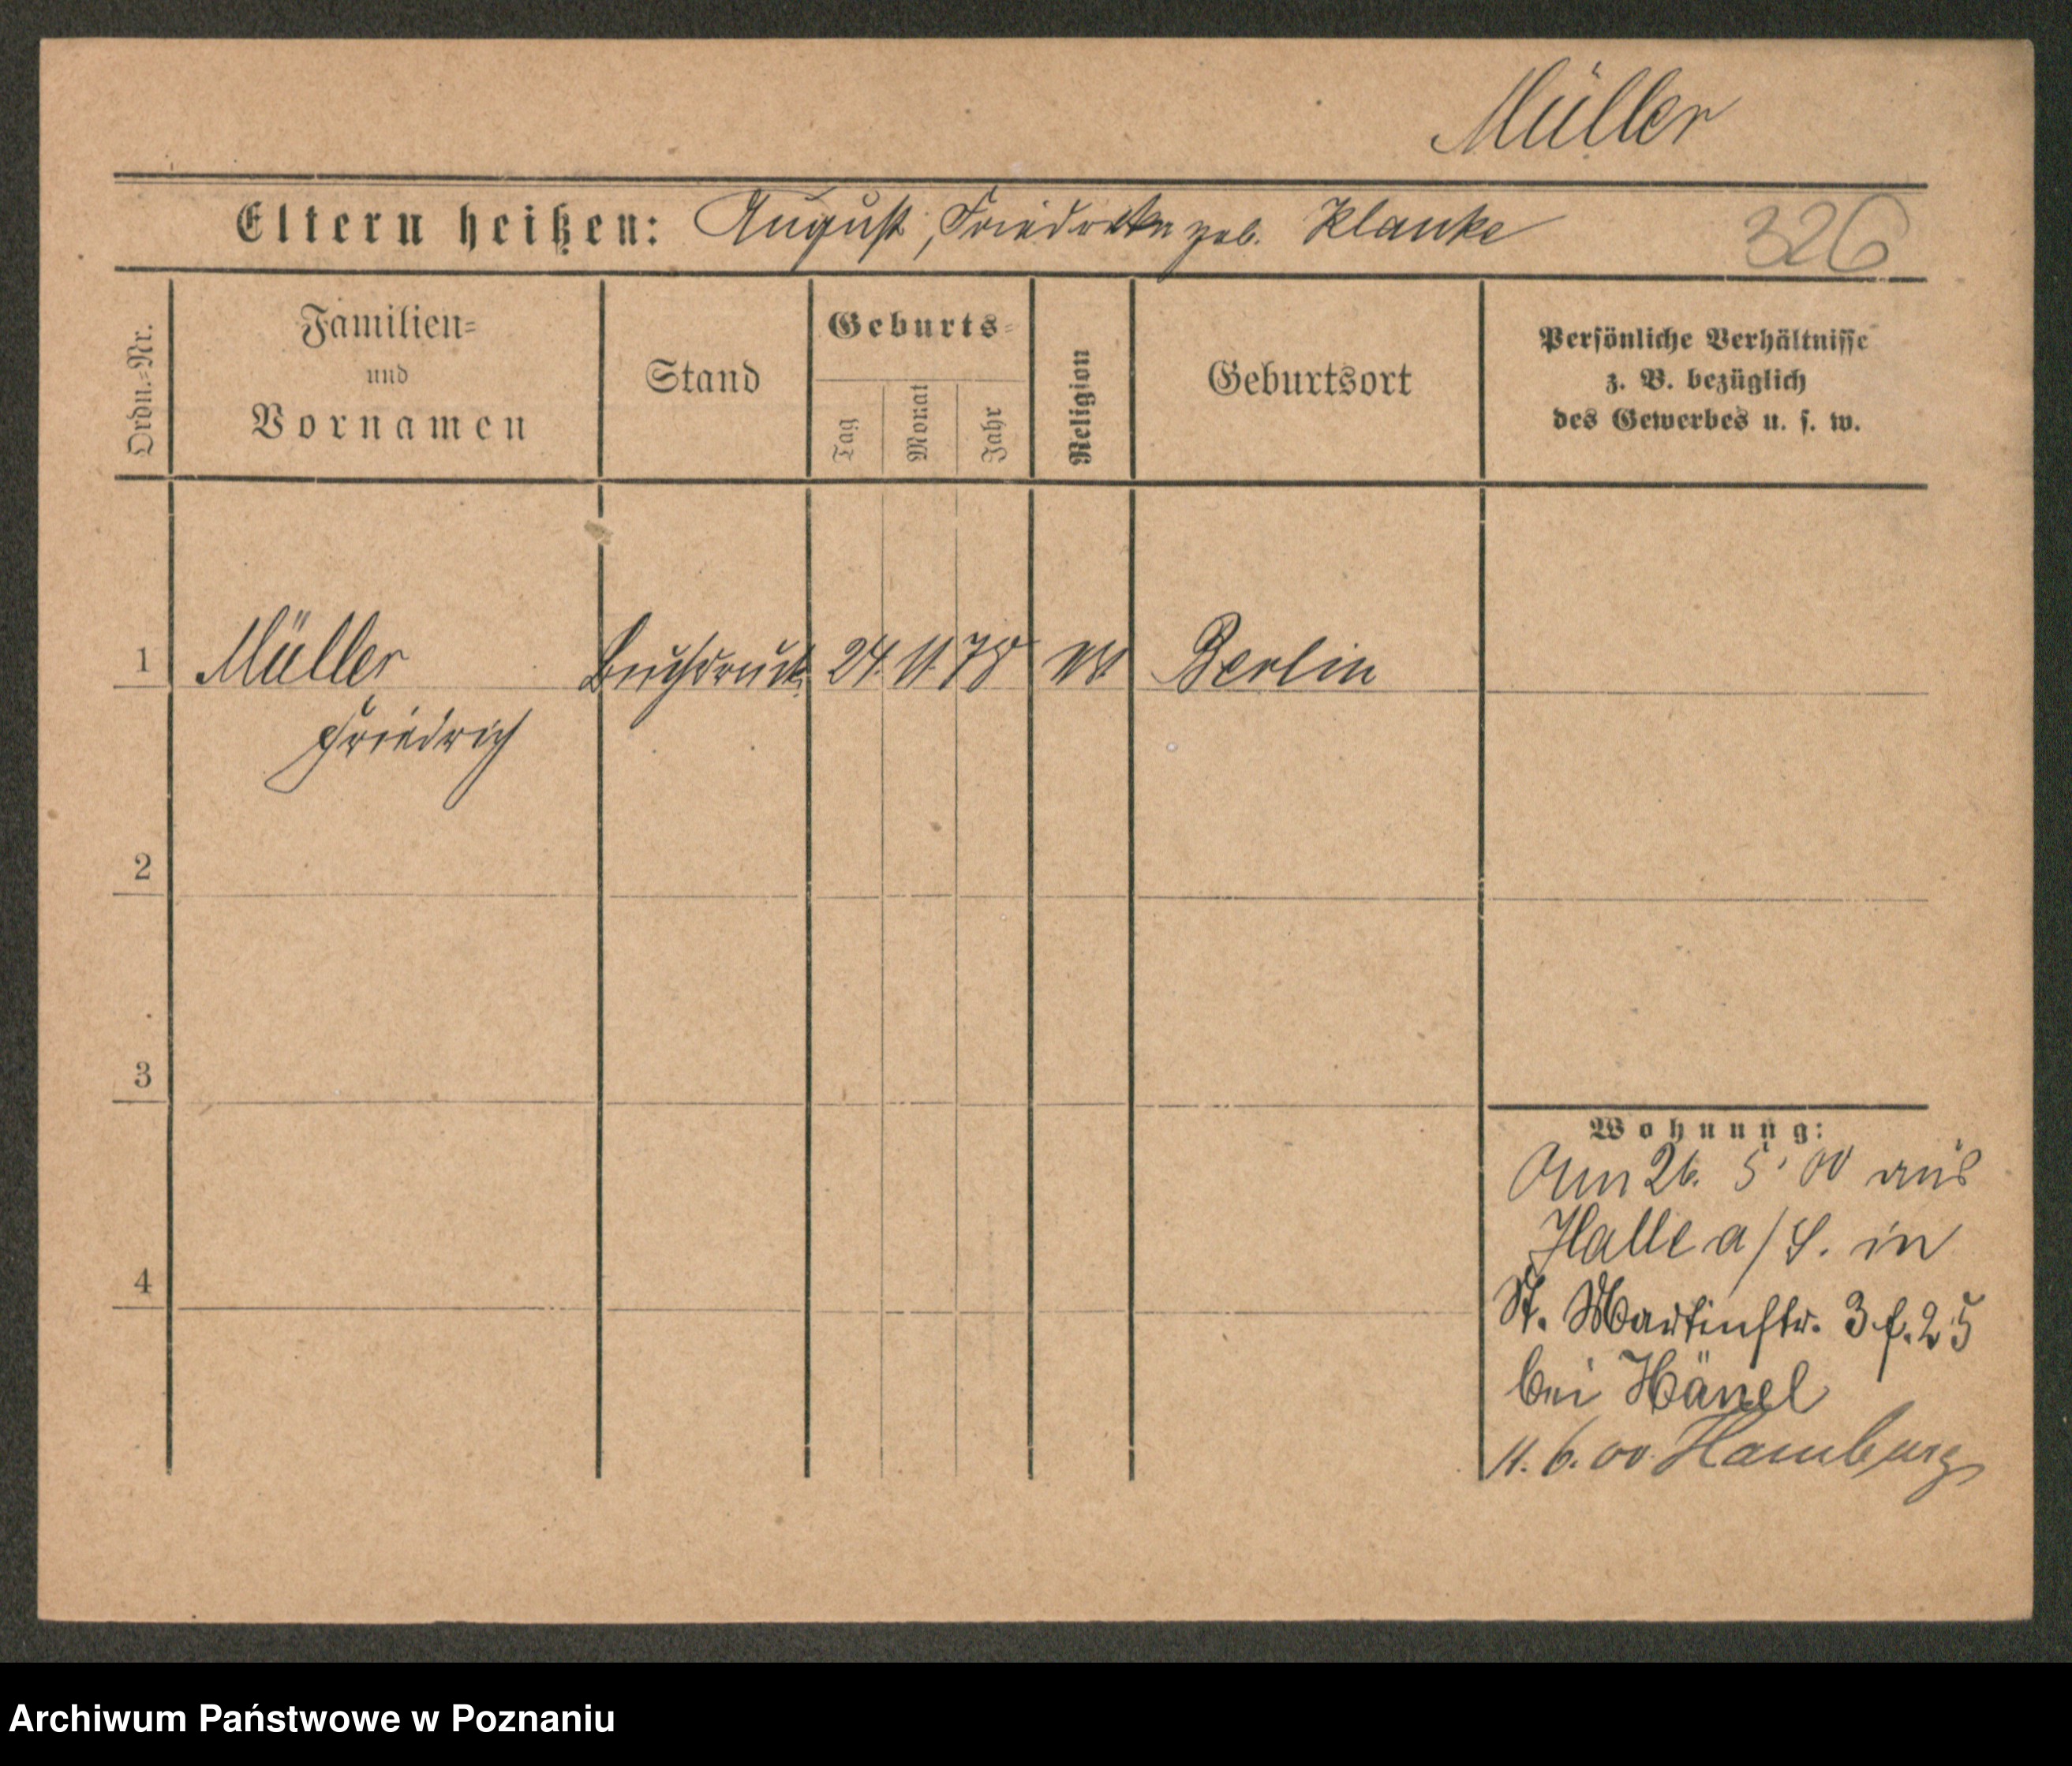 Müller
Eltern heißen: August, Friederike geb. Klanke
326
Ordn.-Nr.
Familien-
und
Vornamen
Stand
Geburts-
Tag
Monat
Jahr
Religion
Geburtsort
Persönliche Verhältnisse
z. B. bezüglich
des Gewerbes u. s. w.
1 Müller Buchdruck. 24. 11. 78 Berlin
Friedrich
2
3
4
Wohnung:
Am 26. 5. 00 aus
Halle a/S. in
St. Martinstr. 25
bei Hänel
11. 6. 00. Hamburg
Archiwum Państwowe w Poznaniu